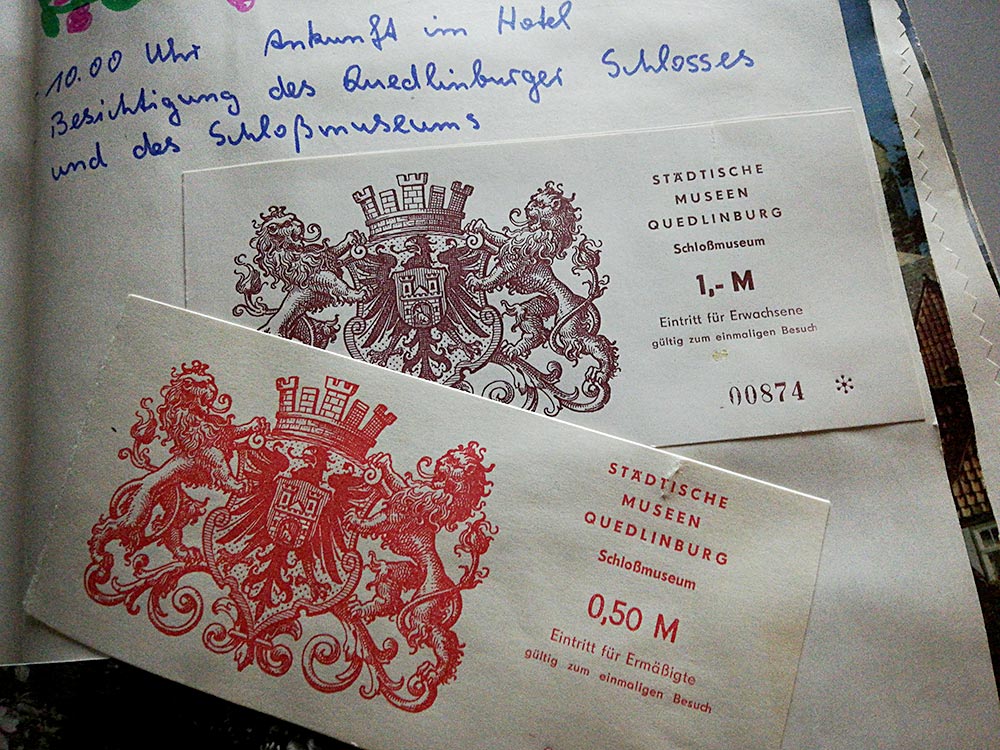 10.00 Uhr Ankunft im Hotel
Besichtigung des Quedlinburger Schlosses
und des Schloßmuseums
STÄDTISCHE
MUSEEN
QUEDLINBURG
Schloßmuseum
1,- M
Eintritt für Erwachsene
gültig zum einmaligen Besuch
00874 *
STÄDTISCHE
MUSEEN
QUEDLINBURG
Schloßmuseum
0,50 M
Eintritt für Ermäßigte
gültig zum einmaligen Besuch